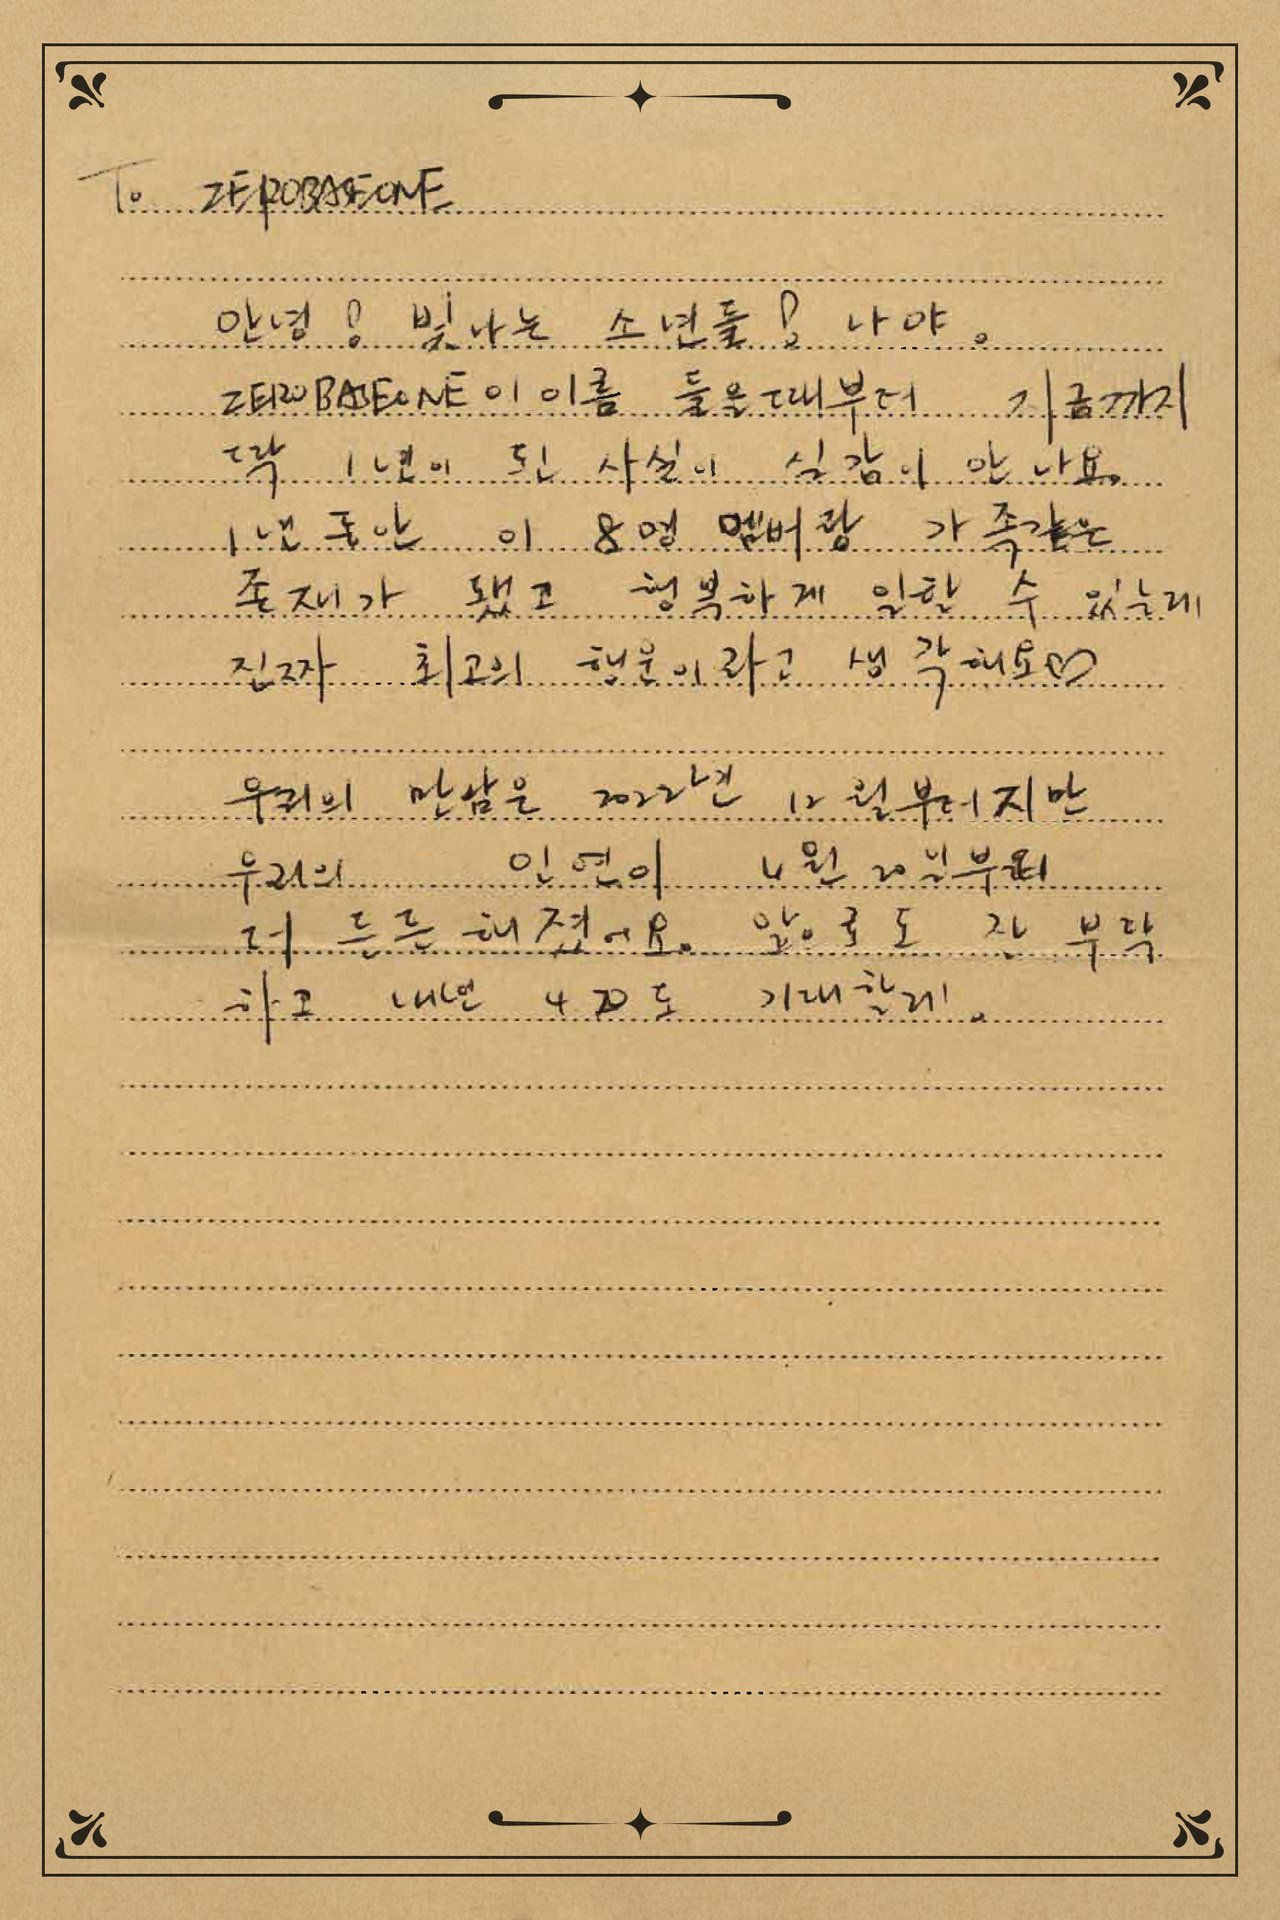 To ZEROBASEONE
안녕! 빛나는 소년들! 나야.
ZEROBASEONE이 이름 들을때부터 지금까지
딱 1년이 된 사실이 실감이 안 나요.
1년 동안 이 8명 멤버랑 가족같은
존재가 됐고 행복하게 일할 수 있는데
진짜 최고의 행운이라고 생각해요♡
우리의 만남은 2022년 12월부터지만
우리의 인연이 4월 20일부터
더 든든해졌어요. 앞으로도 잘 부탁
하고 내년 420도 기대할게.